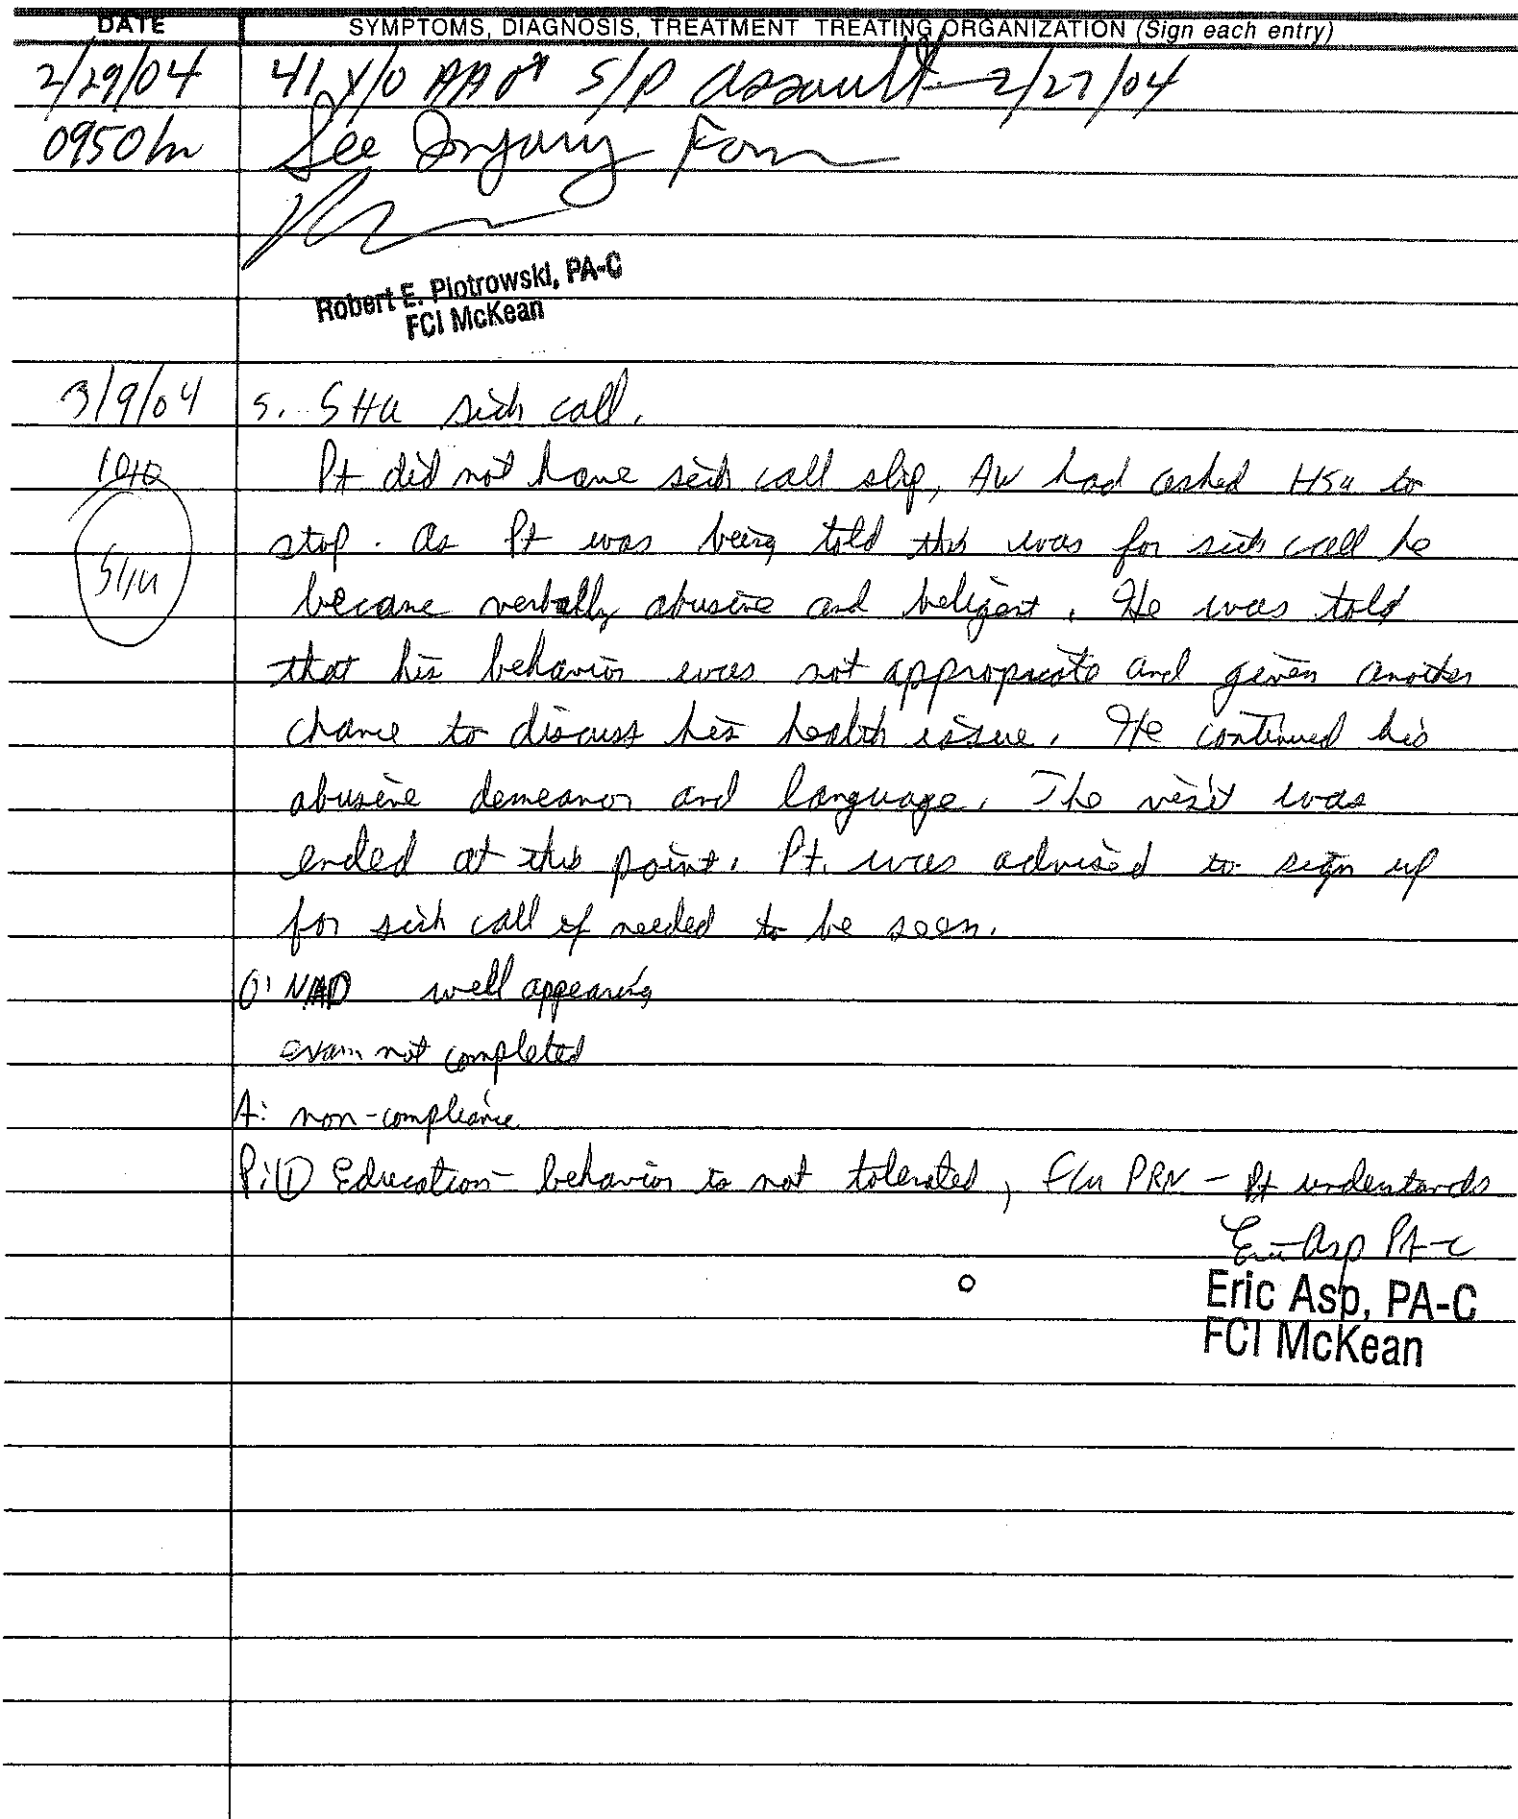 DATE SYMPTOMS, DIAGNOSIS, TREATMENT TREATING ORGANIZATION (Sign each entry)
2/29/04 41 y/o AA♂ S/P assault 2/27/04
0950hr See Injury Form
Robert E. Piotrowski, PA-C
FCI McKean
3/9/04 S. SHU sick call.
1040 Pt did not have sick call slip, AW had asked HSU to
stop. as Pt was being told this was for sick call he
SHU became verbally abusive and beligent. He was told
that his behavior was not appropriate and given another
chance to discuss his health issue. He continued his
abusive demeanor and language. The visit was
ended at this point. Pt. was advised to sign up
for sick call if needed to be seen.
O: NAD well appearing
exam not completed
A: non-compliance
P: ① Education - behavior is not tolerated, f/u PRN - Pt understands
Eric Asp PA-C
Eric Asp, PA-C
FCI McKean